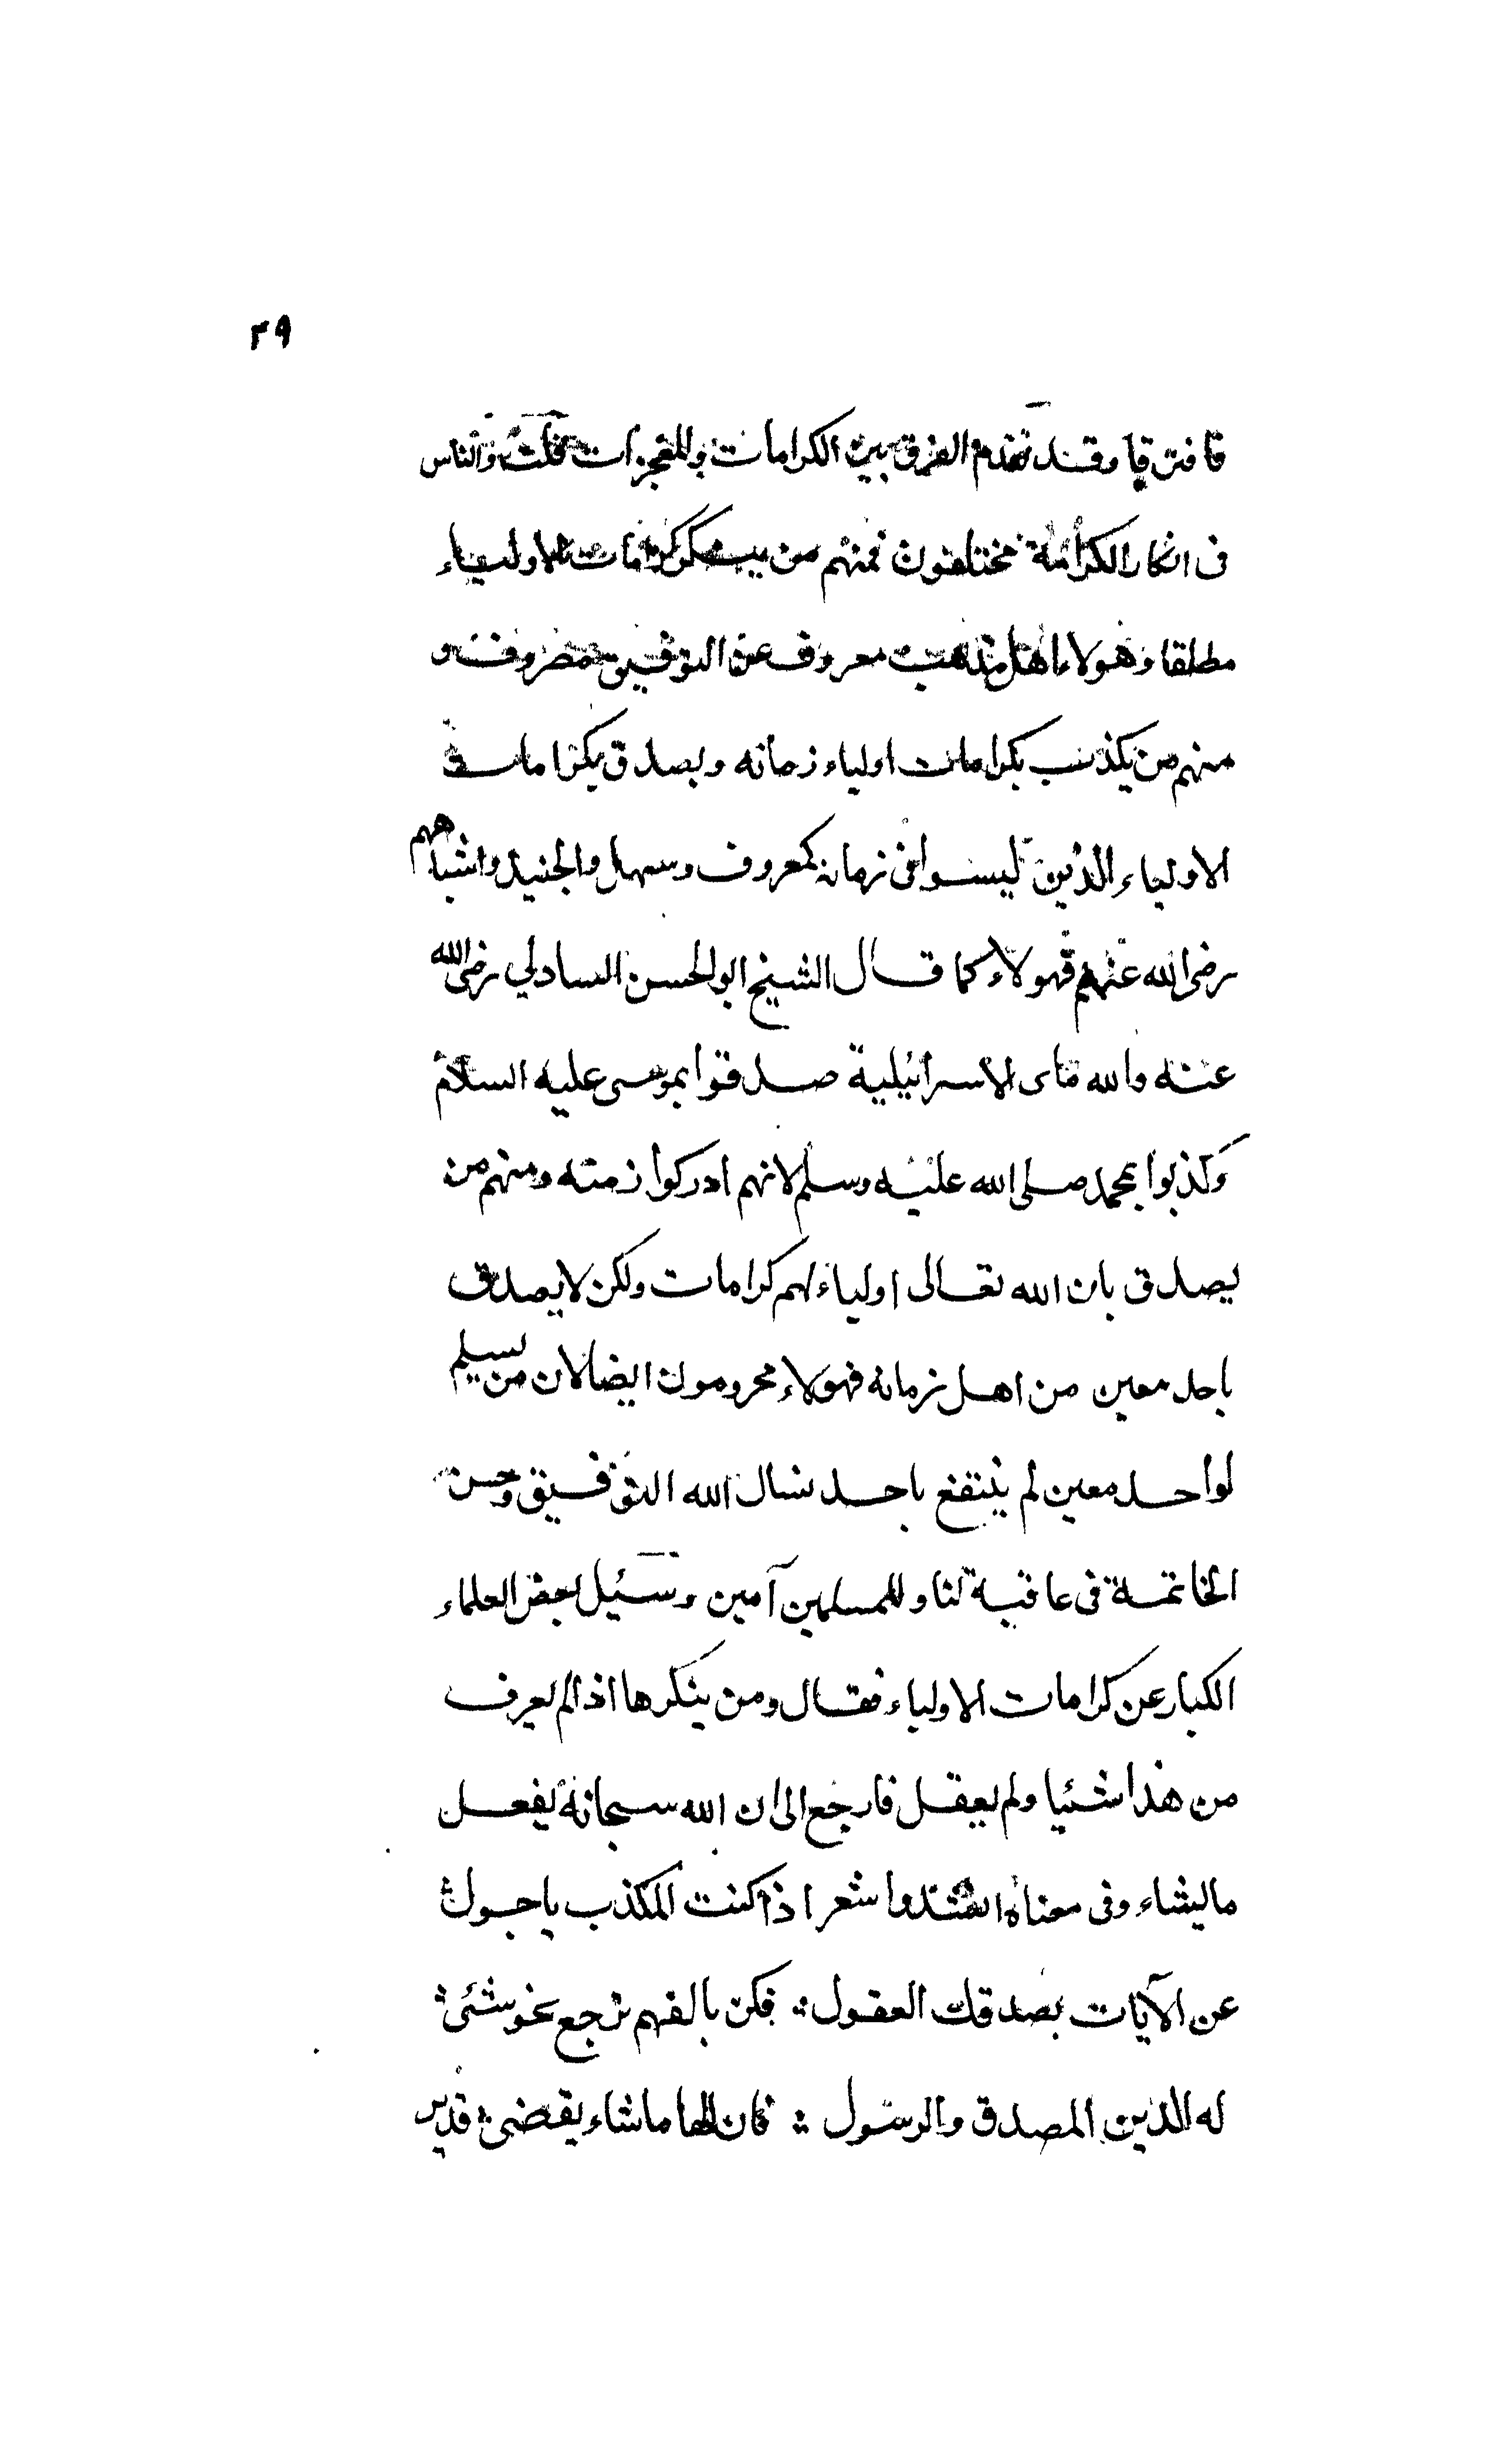 ٢٩
فافترقا وقد تقدم الفرق بين الكرامات والمعجزات قلت والناس
فى انكار الكرامة مختلفون فمنهم من ينكر كرامات الاولياء
مطلقا وهولاء اهل مذهب معروف عن التوفيق مصروف و
منهم من يكذب بكرامات اولياء زمانه ويصدق بكرامات
الاولياء الذين ليسوا فى زمانه كمعروف وسهل والجنيد واشباههم
رضى الله عنهم فهولاء كما قال الشيخ ابو الحسن السادلي رضى الله
عنه والله ماى الاسرائيلية صدقوا بموسى عليه السلام
وكذبوا بمحمد صلى الله عليه وسلم لانهم ادركوا زمنه ومنهم من
يصدق بان الله تعالى اولياء لهم كرامات ولكن لا يصدق
باحد معين من اهل زمانه فهولاء محرومون ايضا لان من لم يسلم
لواحد معين لم ينتفع باحد نسال الله التوفيق وحسن
الخاتمة فى عاقبة لنا وللمسلمين آمين وسئيل بعض العلماء
الكبار عن كرامات الاولياء فقال ومن ينكرها اذا لم يعرف
من هذا شئيا ولم يعقل فارجع الى ان الله سبحانه يفعل
ما يشاء وفى معناه انشدوا شعر اذا كنت المكذب يا جهول
عن الآيات بصدقك العقول ؛ فكن بالفهم ترجع نحو شئى ؛
له الدين المصدق والرسول ؛ فان الها ما شاء يقضى ؛ قدير